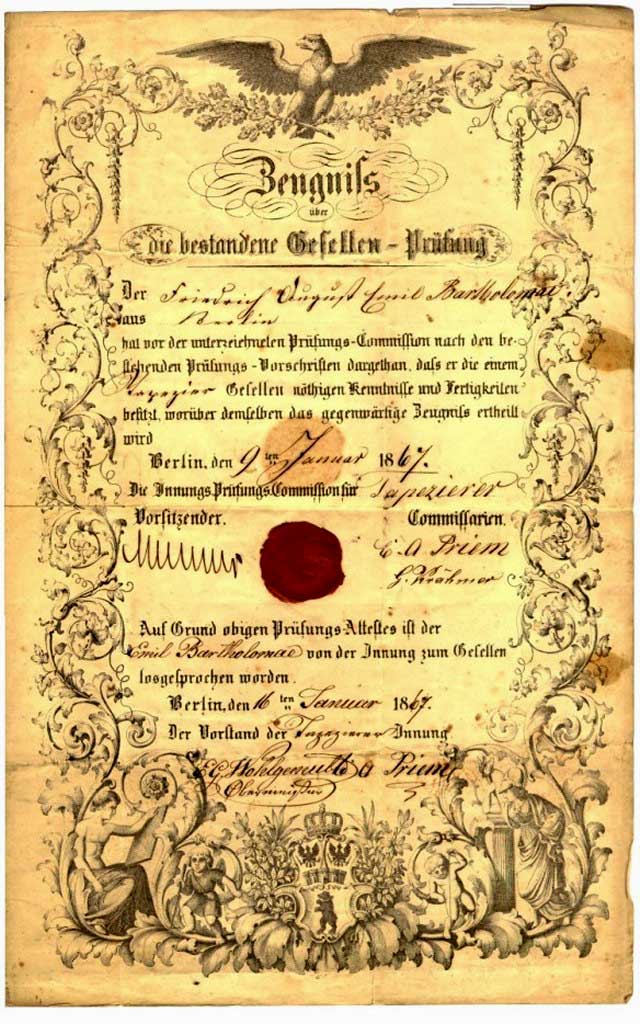 Zeugniſs
über
die bestandene Gesellen - Prüfung
Der Friedrich August Emil Bartholomae
aus Berlin
hat vor der unterzeichneten Prüfungs-Commission nach den be-
stehenden Prüfungs-Vorschriften dargethan, daſs er die einem
Tapezier Gesellen nöthigen Kenntnisse und Fertigkeiten
besitzt, worüber demselben das gegenwärtige Zeugniſs ertheilt
wird
Berlin, den 9ten Januar 1867.
Die Innungs-Prüfungs-Commission für Tapezierer
Vorsitzender. Commissarien.
E. A. Priem
G. Krähmer
Auf Grund obigen Prüfungs-Attestes ist der
Emil Bartholomae von der Innung zum Gesellen
losgesprochen worden.
Berlin, den 16ten Januar 1867.
Der Vorstand der Tapezierer Innung
Priem
Obermeister